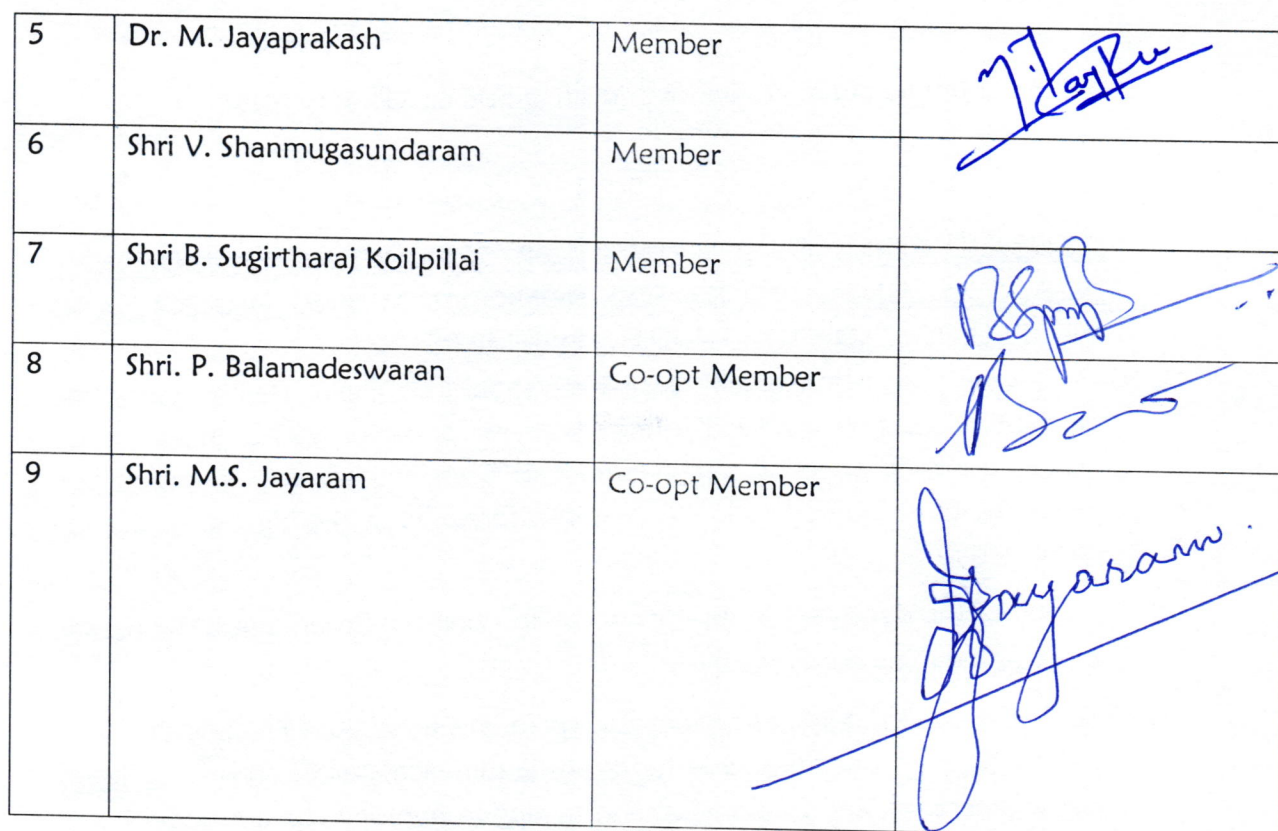 5 Dr. M. Jayaprakash Member
6 Shri V. Shanmugasundaram Member
7 Shri B. Sugirtharaj Koilpillai Member
8 Shri. P. Balamadeswaran Co-opt Member
9 Shri. M.S. Jayaram Co-opt Member
Jayaram